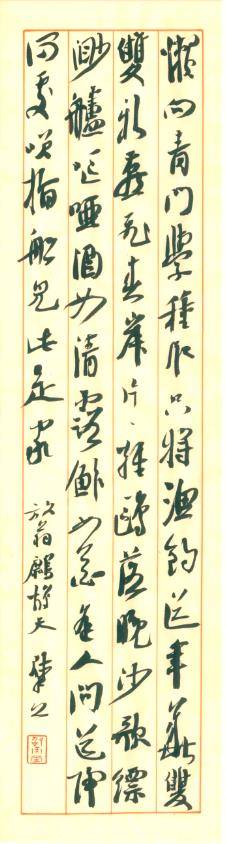 懶向青門學種瓜只將漁釣送年華雙
雙新燕飛春岸片々輕鷗落晚沙歌縹
渺艫嘔啞酒如清露鮓如花逢人問道歸
何處笑指船兒此是家 放翁鷓鴣天